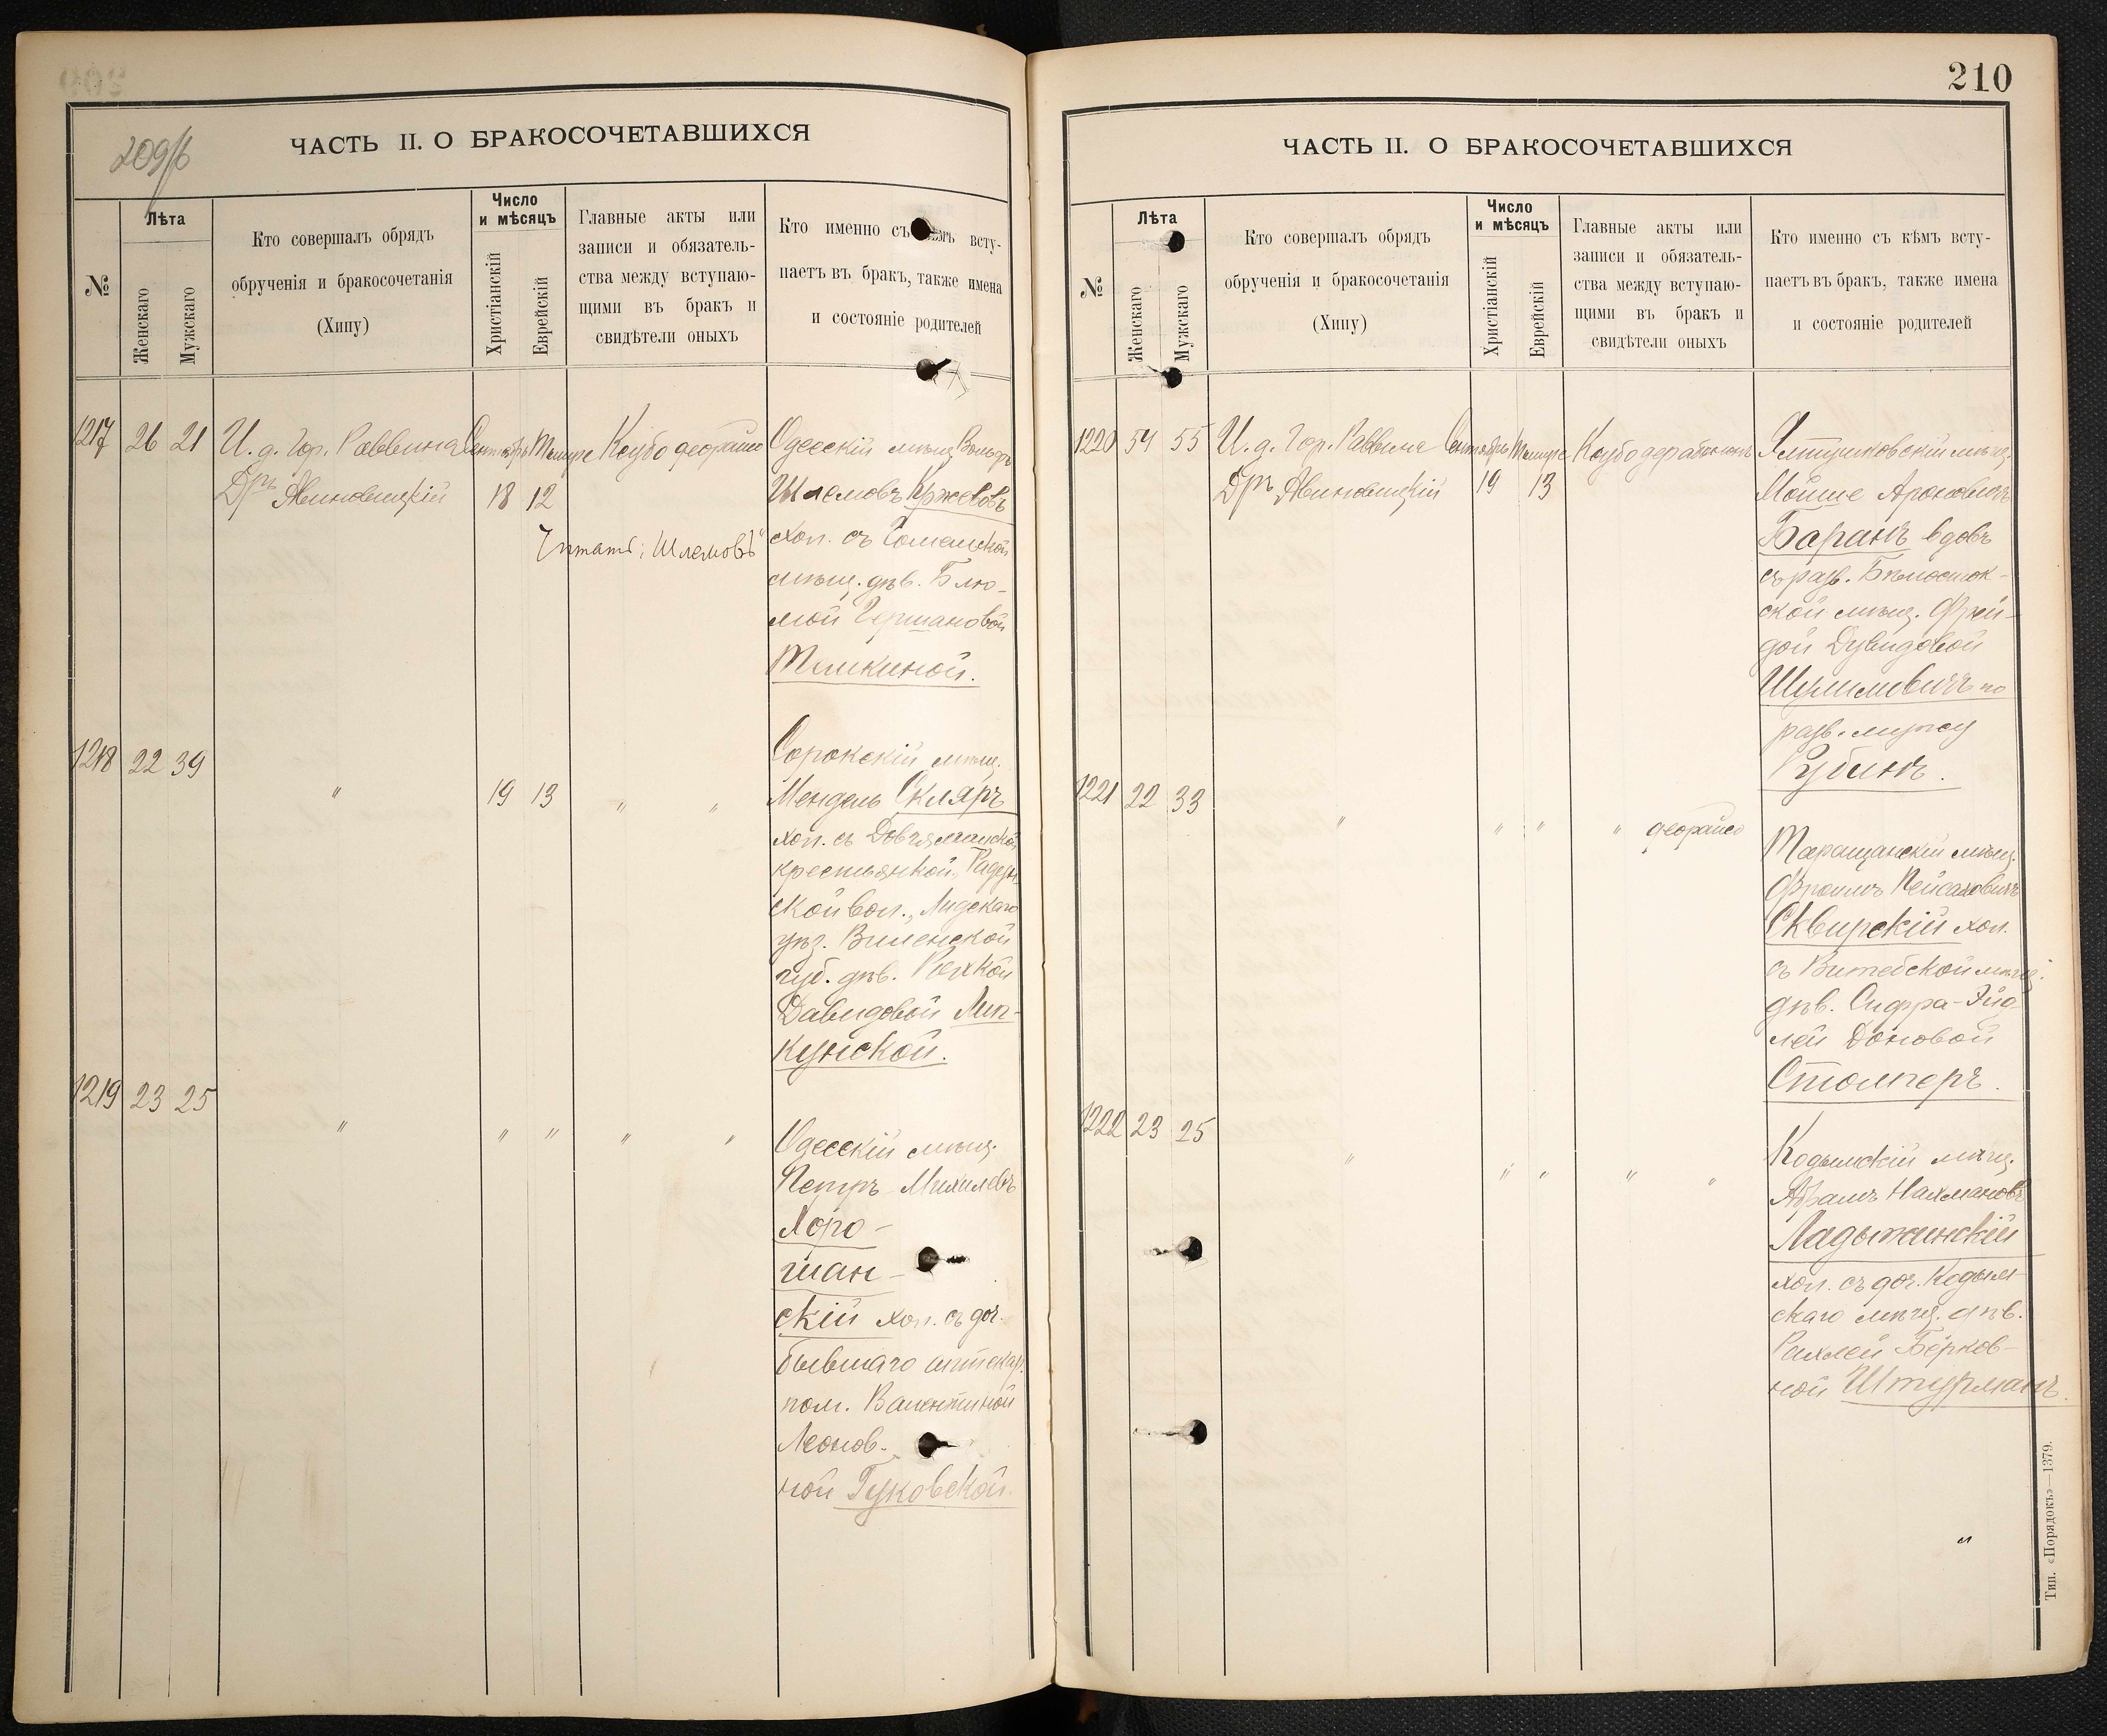 209/б
ЧАСТЬ II. О БРАКОСОЧЕТАВШИХСЯ
№
Лѣта
Женскаго
Мужскаго
Кто совершалъ обрядъ
обрученія и бракосочетанія
(Хипу)
Число
и мѣсяцъ
Христіанскій
Еврейскій
Главные акты или
записи и обязатель-
ства между вступаю-
щими въ бракъ и
свидѣтели оныхъ
Кто именно съ кѣмъ всту-
паетъ въ бракъ, также имена
и состояніе родителей
1217 26 21 И. д. Гор. Раввина Сентябрь Тишре Ксубо деорайсо
Дръ Авиновицкій 18 12
Читать: "Шлемовъ"
Одесскій мѣщ. Вольфъ
Шлемовъ Кржевовъ
хол. съ Гомельской
мѣщ. дѣв. Блю-
мой Гершановой
1218 22 39 " 19 13 " "
Сорокскій мѣщ.
Мендель Скляръ
хол. съ
крестьянкой,
ской вол., Лидскаго
уѣз. Виленской
губ. дѣв.
Давидовой Лип-
кунской.
1219 23 25 " " " " "
Одесскій мѣщ.
Петръ Михилевъ
Хоро-
шан-
скій хол. съ доч.
бывшаго аптекар.
пом. Валентиной
Леонов-
ной Гуковской.
210
ЧАСТЬ II. О БРАКОСОЧЕТАВШИХСЯ
№
Лѣта
Женскаго
Мужскаго
Кто совершалъ обрядъ
обрученія и бракосочетанія
(Хипу)
Число
и мѣсяцъ
Христіанскій
Еврейскій
Главные акты или
записи и обязатель-
ства между вступаю-
щими въ бракъ и
свидѣтели оныхъ
Кто именно съ кѣмъ всту-
паетъ въ бракъ, также имена
и состояніе родителей
1220 54 55 И. д. Гор. Раввина Сентябрь Тишре Ксубо дерабононъ
Дръ Авиновицкій 19 13
Ялтушковскій мѣщ.
Мойше Ароновичъ
Баранъ вдовъ
съ разв. Бѣлосток-
ской мѣщ. Фрей-
дой Дувидовой
Шулимовичъ по
разв. мужу
Рубинъ.
1221 22 33 " " " " деорайсо
Таращанскій мѣщ.
Фроимъ Пейсаховичъ
Сквирскій хол.
съ Витебской мѣщ.
дѣв. Сифра-Эйд-
лей Доновой
Столперъ.
1222 23 25 " " " " "
Кодымскій мѣщ.
Абрамъ Нахмановъ
Ладыжинскій
хол. съ доч. Кодым-
скаго мѣщ. дѣв.
Рахлей Берков-
ной Штурманъ.
Тип. «Порядокъ»—1379.